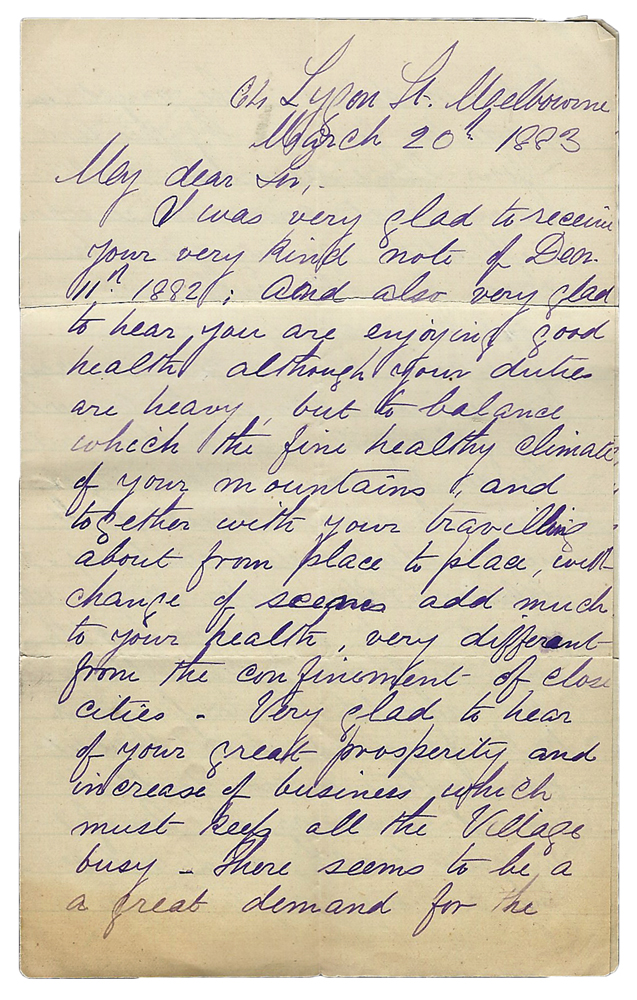 Lygon St. Melbourne
March 20th 1883
My dear Sir,
I was very glad to receive
your very kind note of Dec.
11th 1882; And also very glad
to hear you are enjoying good
health although your duties
are heavy, but to balance
which the fine healthy climate
of your mountains, and
together with your travelling
about from place to place, with
change of scenes add much
to your health, very different
from the confinement of close
cities - Very glad to hear
of your great prosperity and
increase of business which
must keep all the Village
busy - There seems to be a
a great demand for the